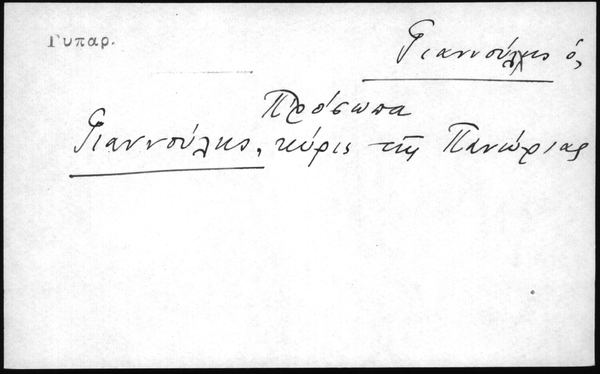 Γυπαρ.
Γιαννούλης ὁ,
Πρόσωπα
Γιαννούλης, κύρις τῆς Πανώριας